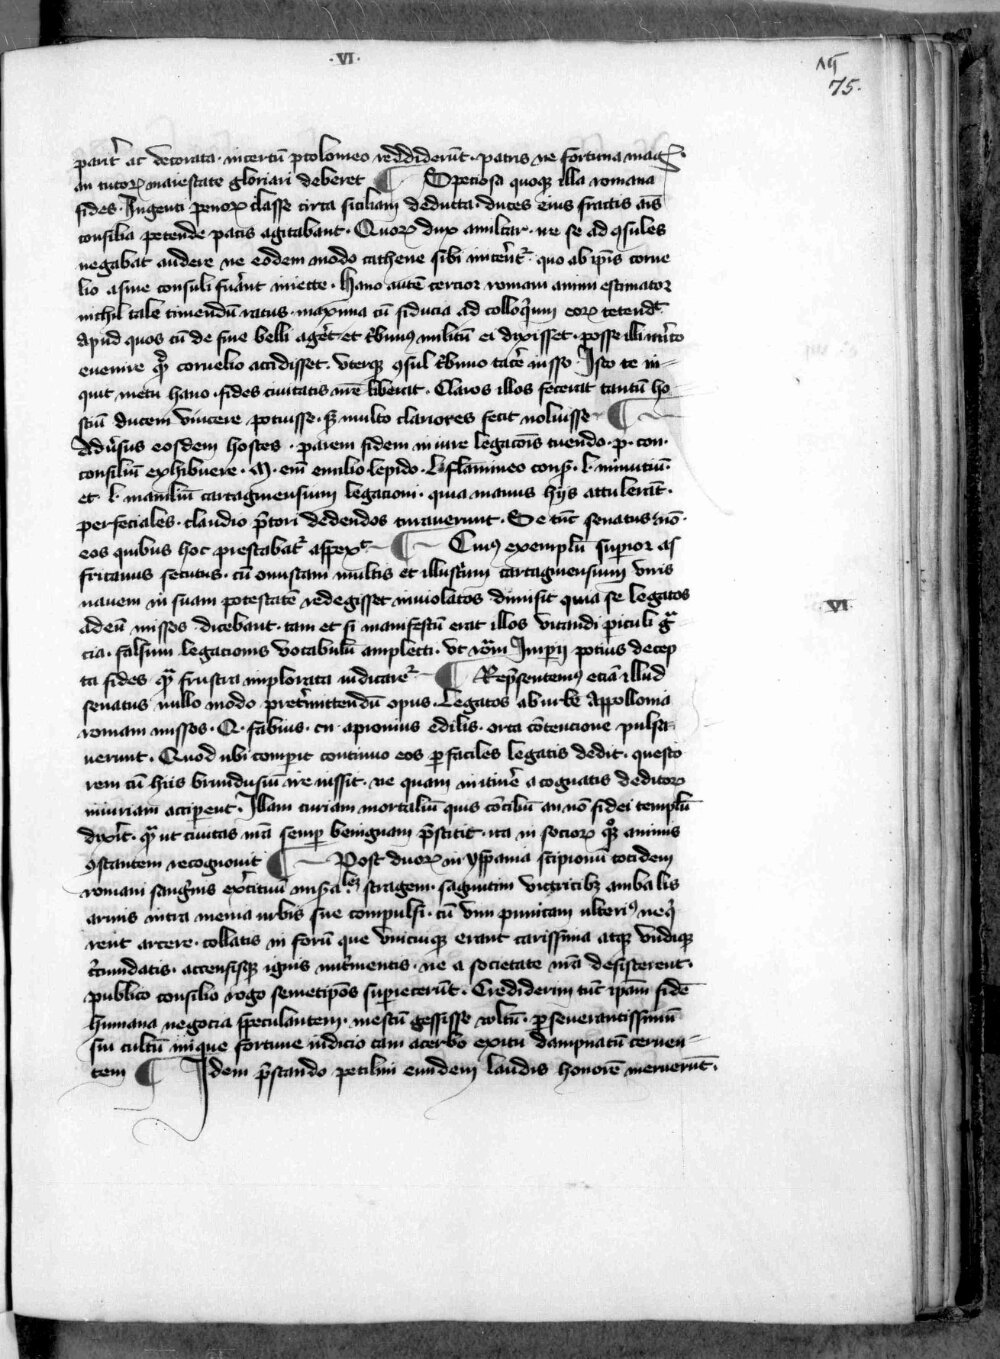 ·VI·
75.
parit̉ ac decorata · incertū ptolomeo reddiderūt · patris ne fortuna magꝭ
an tutoꝝ maiestate gloriari deberet ¶ Speciosa quoqꝫ illa romana
fides · Ingenti penoꝝ classe circa siciliam deducta · duces eius fractis aīs
consilia petende pacis agitabant · Quoꝝ dux amilcar · ire se ad ꝯsules
negabat audere ne eodem modo cathene sibi inicer̄ētᷣ · quo ab ip̄is corne
lio asine consuli fuer̄āt iniecte · Hano autē cercior romani animi estimator
nichil tale timendū ratus · maxima cū fiducia ad colloqͥum eoꝝ tetendt̄
apud quos cū de fine belli ager̄t et tͥbunꝰ militū ei dixisset · posse illi mer̄ito
euenire qd̄ cornelio accidisset · vterqꝫ ꝯsul tͥbuno tacer̄e iusso · Isto te in-
quit metu hano · fides ciuitatis nr̄e liberat · Claros illos fecerat tantū ho-
stiū ducem vincere potuisse · sꝫ multo clariores fecit noluisse ¶
Aduer̄sus eosdem hostes · parem fidem in iure legacōis tuendo · p · con·
consiliū exhibuere · M · em̄ emilio lepido · L · flamineo consꝰ · l · minutiū·
et · l · manliū cartaginensium legacioni · quia manus hijs attulerāt·
per feciales · claudio p̄tori dedendos curauerunt · Se tūc senatus nō·
eos quibus hoc prestabatᷣ aspext̄ ¶ Cuiꝰ exemplū supior af
fricanus secutus · cū onustam multis et illustͥum cartaginensium viris
nauem in suam potestatē redegisset inuiolatos dimisit quia se legatos
ad eū missos dicebant · tam et si manifestū erat illos vitandi piculi gͣ
cia · falsum legacionis vocabulū amplecti · vt rōm̄ Imperij potius decep
ta fides qͣ frustra implorata iudicaretᷣ ¶ Rep̄sentemꝰ etiā illud
senatus nullo modo pretͥmittendū opus · Legatos ab vrbe Appollonia
romam missos · Q · fabius · cn · apronius edilis · orta cōtencione pulsa
uerunt · Quod ubi comperit continuo eos p faciles legatis dedit · questo
rem cū hiis brundusiū ire iussit · ne quam in itiner̄e a cognatis deditoꝝ
iniuriam acciperent · Illam curiam mortaliū quis cōciliū an nō fidei templū
dixer̄it · qͣ ut ciuitas nr̄a semp benignam p̄stitit · ita in socioꝝ qꝫ animis
ꝯstantem recognouit ¶ Post duoꝝ in yspania scipionū totidem
romani sangͥnis exer̄cituū misᷓabilē stragem · saguntini victricibꝫ anibalis
armis intra menia urbis sue compulsi · cū vim punicam ulteriꝰ neqͥ
rent arcere · collatis in forū que vnicuiqꝫ erant carissima atqꝫ vndiqꝫ
cͥcundatis · accensisqꝫ ignis nutͥmentis · ne a societate nr̄a desisterent·
publico consilio rogo semetip̄os supiecerūt · Crediderim tūc ip̄am fidē
humana negocia speculantem · mestū gessisse wltū · pseuerantissimū
sui cultū inique fortune iudicio tam acerbo exitu dampnatū cernen-
tem ¶ Idem p̄stando petilini eundem laudis honorē meruerūt·
VI